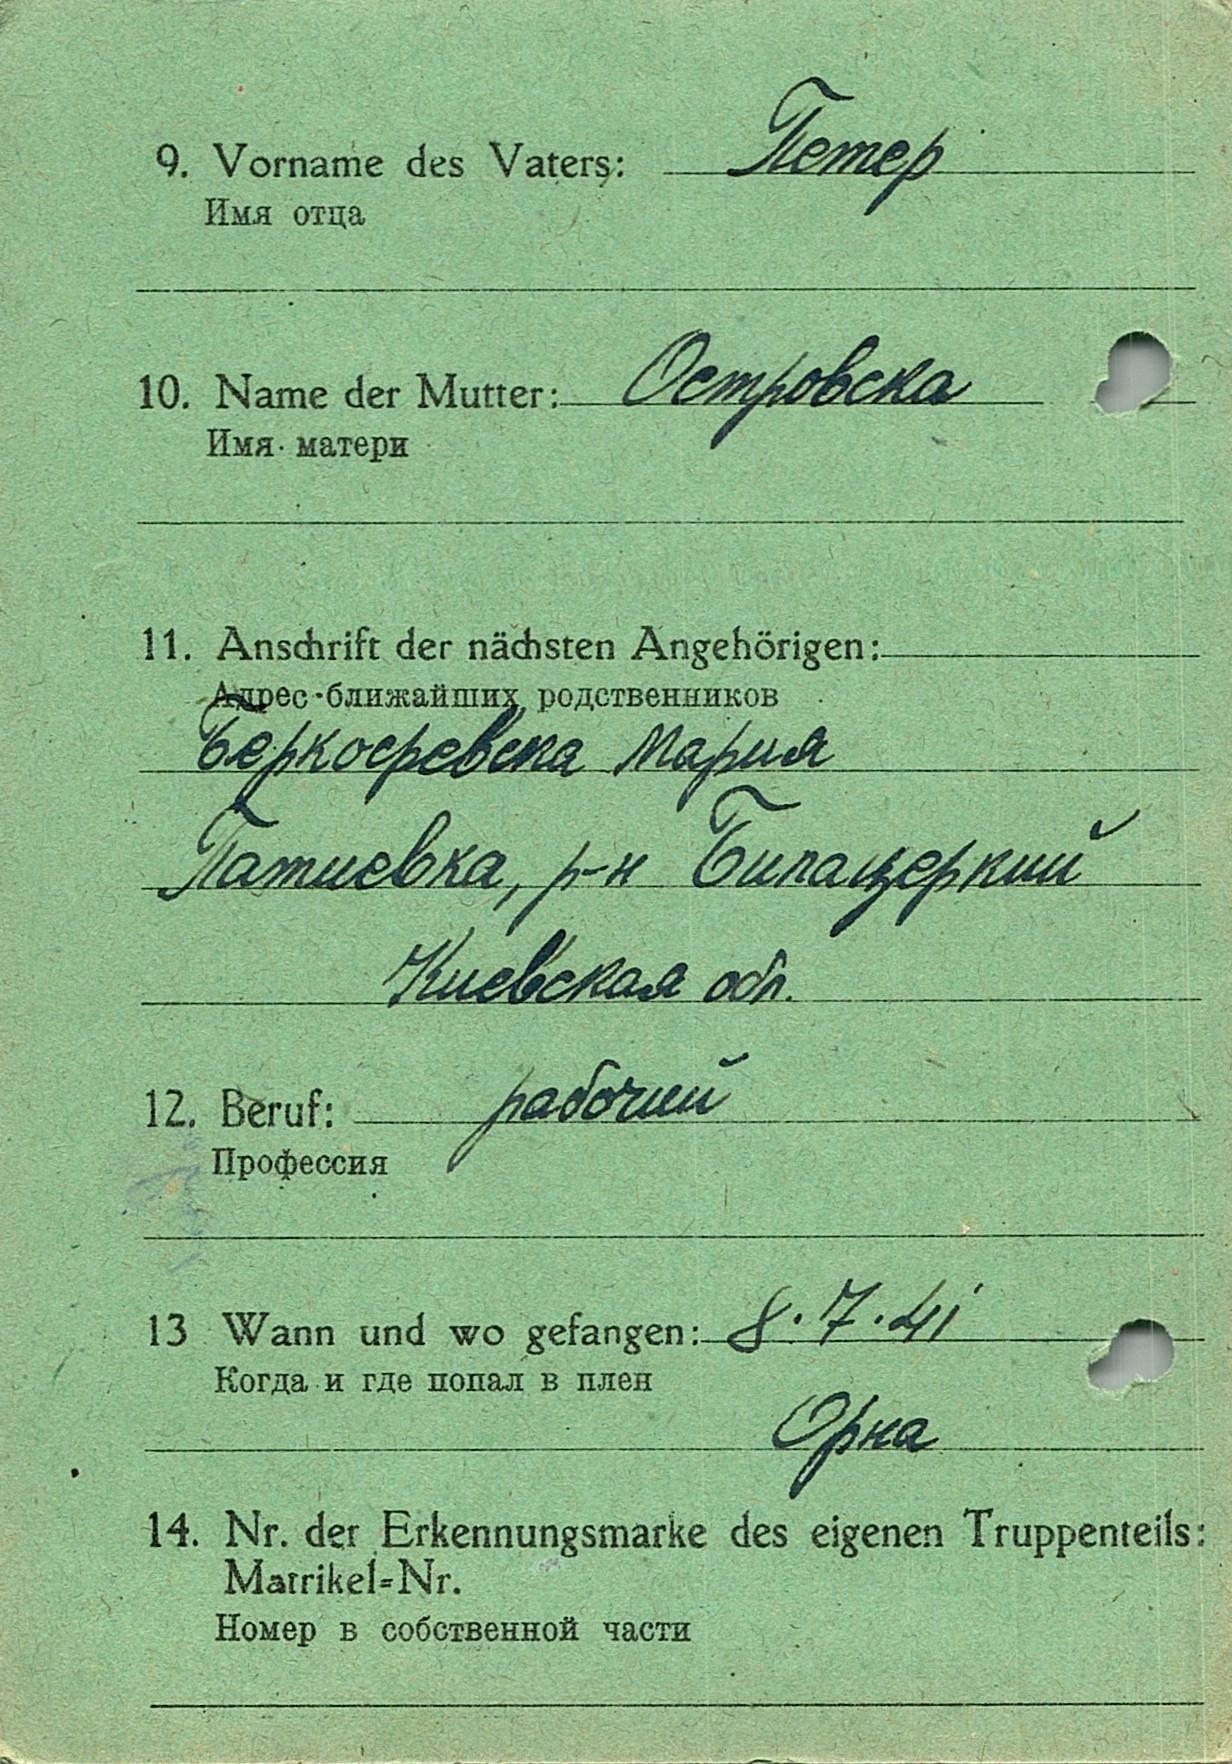 9. Vorname des Vaters: Петер
Имя отца
10. Name der Mutter: Островска
Имя матери
11. Anschrift der nächsten Angehörigen:
Адрес ближайших родственников
Мария
р-н Билацеркий
Киевская обл.
12. Beruf: рабочий
Профессия
13 Wann und wo gefangen: 8.7.41
Когда и где попал в плен
Орна
14. Nr. der Erkennungsmarke des eigenen Truppenteils:
Matrikel=Nr.
Номер в собственной части